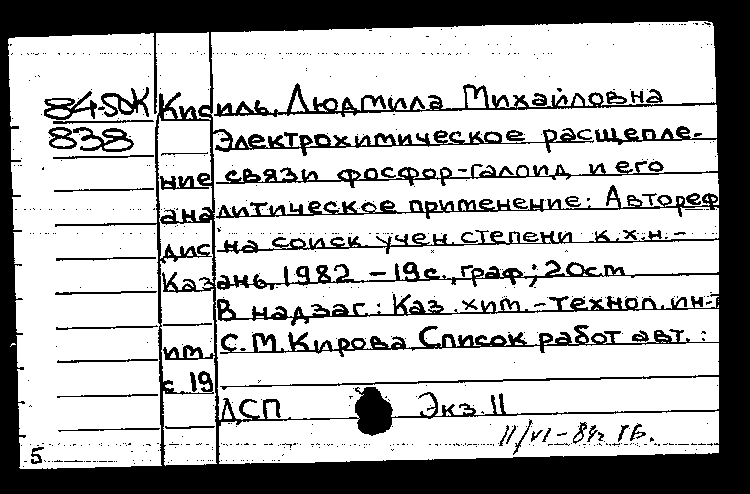 84-50К Кисиль, Людмила Михайловна
838 Электрохимическое расщепле-
ние связи фосфор-галоид и его
аналитическое применение: Автореф
дис на соиск. учен. степени к.х.н.-
Казань, 1982 - 19с., граф; 20см.
В надзаг.: Каз. хим.-технол. ин-т
им. С.М.Кирова Список работ авт.:
с. 19.
ДСП Экз 11
11/VI-84г
5